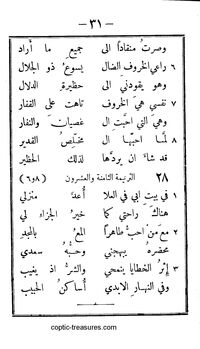 — ٣١ —
وصرتُ منقاداً الى جميع ما أراد
٦ راعي الخروف الضال يسوعُ ذو الجلال
وهو يقودني الى حظيرة الدلال
٧ نفسي هي الخروف تاهت على القفار
وهي التي احبَّت ال عصيان والنفار
٨ لمَّا احبَّها ال مخلّصُ القدير
قد شاء ان يردَّها لذلك الحظير
٢٨ الترنيمة الثامنة والعشرون (٨و٦)
١ في بيت ابي في العلا أُعدَّ منزلي
هناك راحتي كما خيرُ الجزاء لي
٢ مع من احب طاهراً المعُ بالمجدِ
محضرهُ يبهجني وحبُّهُ سعدي
٣ إثرُ الخطايا ينمحي والشرُّ اذ يغيب
وفي النهار الابدي أُساكن الحبيب
coptic-treasures.com